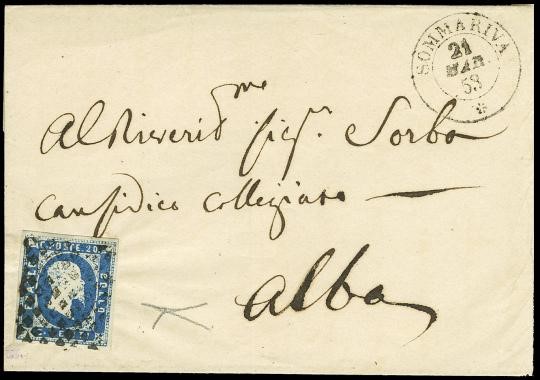 SOMMARIVA
21
MAR
53
me
Al Riverid Sig.r Sorba
causidico collegiato
Alba
POSTE. 20
BOLLO